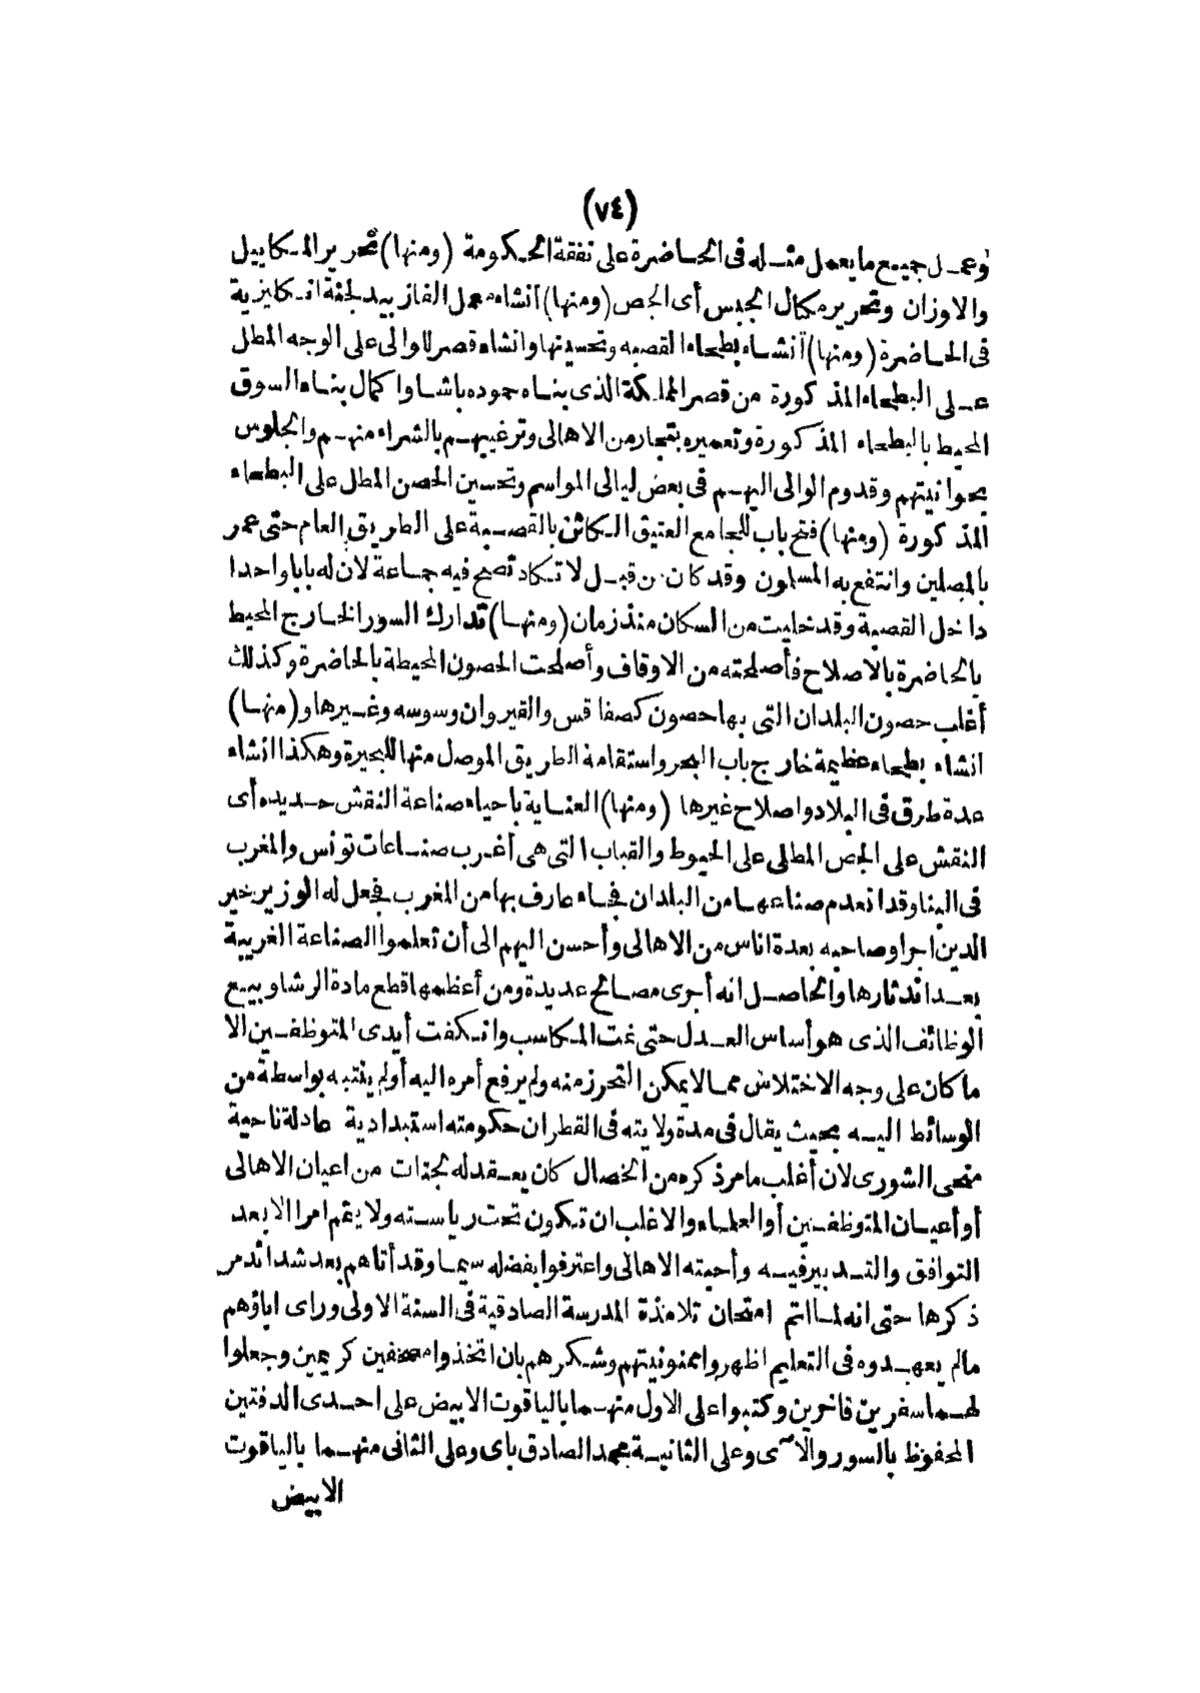 (٧٤)
وعمل جميع ما يعمل مثله فى الحاضرة على نفقة الحكومة (ومنها) تحرير المكاييل
والاوزان وتحرير مكال الجبس أى الجص (ومنها) انشاء معمل الغاز بيد لجنة انكليزية
فى الحاضرة (ومنها) انشاء بطحاء القصبه وتحسينها وانشاء قصر للوالى على الوجه المطل
على البطحاء المذكورة من قصر المملكة الذى بناه حموده باشا واكمال بناء السوق
المحيط بالبطحاء المذكورة وتعميره بتجار من الاهالى وترغيبهم بالشراء منهم والجلوس
بحوانيتهم وقدوم الوالى اليهم فى بعض ليالى المواسم وتحسين الحصن المطل على البطحاء
المذكورة (ومنها) فتح باب للجامع العتيق الكائن بالقصبة على الطريق العام حتى عمر
بالمصلين وانتفع به المسلمون وقد كان من قبل لا تكاد تصح فيه جماعة لان له بابا واحدا
داخل القصبة وقد خليت من السكان منذ زمان (ومنها) تدارك السور الخارج المحيط
بالحاضرة بالاصلاح فأصلحته من الاوقاف وأصلحت الحصون المحيطة بالحاضرة وكذلك
أغلب حصون البلدان التى بها حصون كصفاقس والقيروان وسوسه وغيرها و(منها)
انشاء بطحاء عظيمة خارج باب البحر واستقامة الطريق الموصل منها للبحيرة وهكذا انشاء
عدة طرق فى البلاد واصلاح غيرها (ومنها) العناية باحياء صناعة النقش حديده أى
النقش على الجص المطلى على الحيوط والقباب التى هى أغرب صناعات تونس والمغرب
فى البنا وقد انعدم صناعها من البلدان فجاء عارف بها من المغرب فجعل له الوزير خير
الدين اجرا وصاحبه بعدة اناس من الاهالى وأحسن اليهم الى أن تعلموا الصناعة الغريبة
بعد اندثارها والحاصل انه أجرى مصالح عديدة ومن أعظمها قطع مادة الرشا وبيع
الوظائف الذى هو أساس العدل حتى نمت المكاسب وانكفت أيدى المتوظفين الا
ما كان على وجه الاختلاس مما لا يمكن التحرز منه ولم يرفع أمره اليه أولم ينتبه بواسطة من
الوسائط اليه بحيث يقال فى مدة ولايته فى القطر ان حكومته استبدادية عادلة ناحية
منحى الشورى لان أغلب ما مر ذكره من الخصال كان يعقد له لجنات من اعيان الاهالى
أو أعيان المتوظفين أو العلماء والاغلب ان تكون تحت رياسته ولا يتم امرا الا بعد
التوافق والتدبير فيه وأحبته الاهالى واعترفوا بفضله سيما وقد أتاهم بعد شدائد مر
ذكرها حتى انه لما اتم امتحان تلامذة المدرسة الصادقية فى السنة الاولى وراى اباؤهم
مالم يعهدوه فى التعليم اظهروا ممنونيتهم وشكرهم بان اتخذوا مصحفين كريمين وجعلوا
لهما سفرين فاخرين وكتبوا على الاول منهما بالياقوت الابيض على احدى الدفتين
المحفوظ بالسور والآى وعلى الثانية محمد الصادق باى وعلى الثانى منهما بالياقوت
الابيض